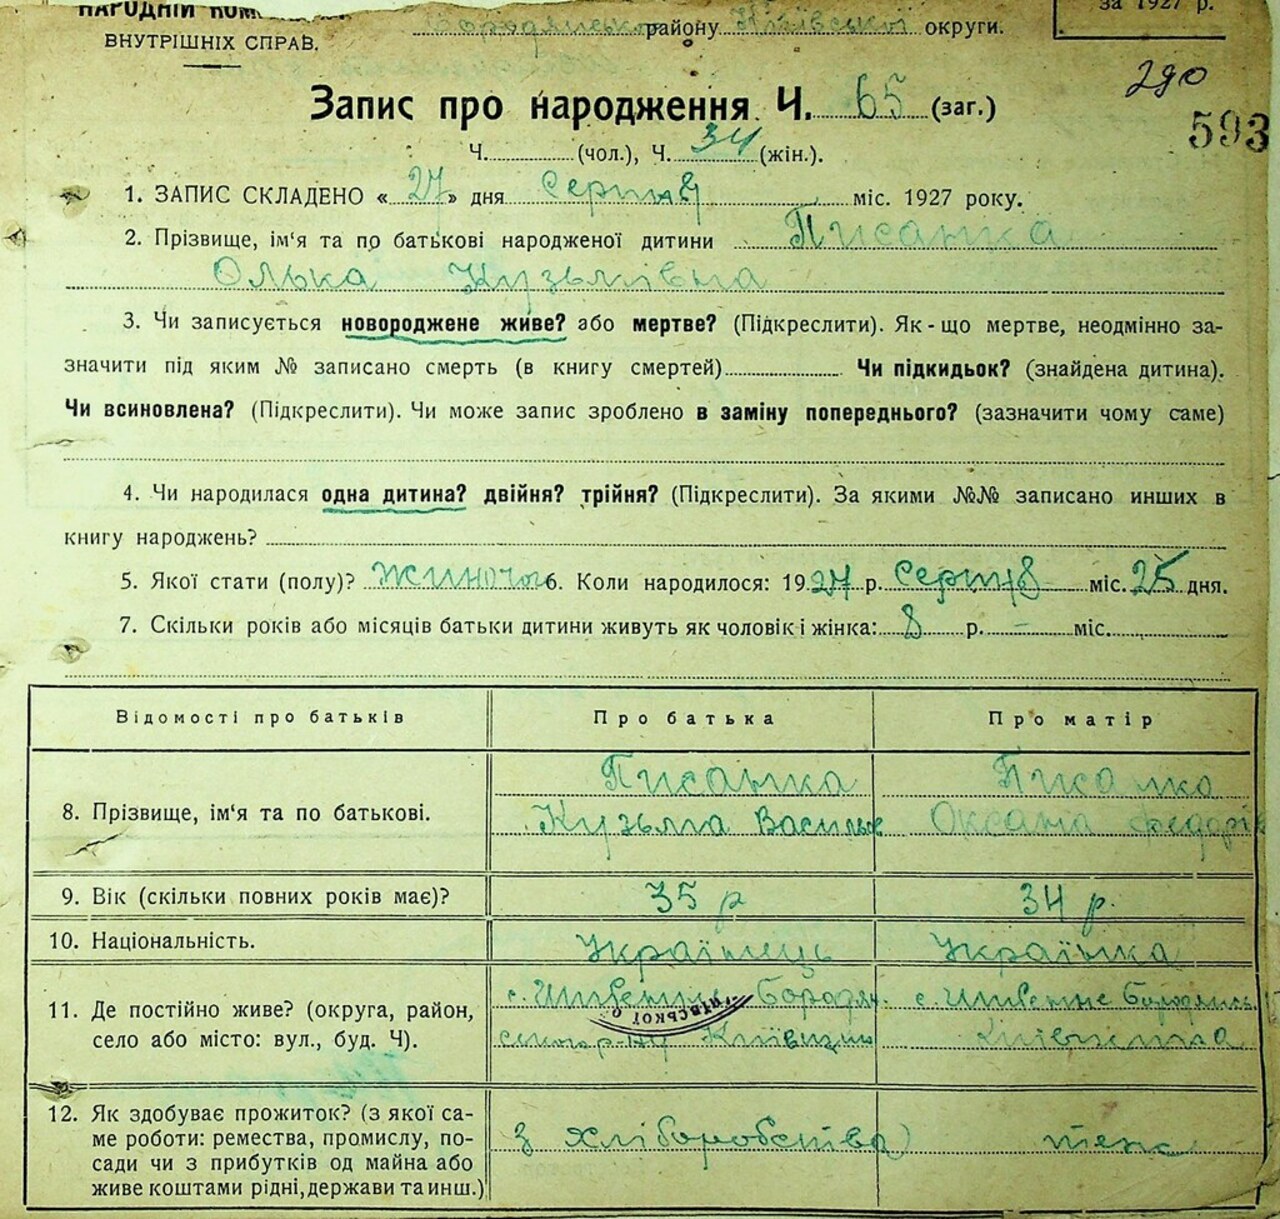 НАРОДНІЙ
за 1927 р.
ВНУТРІШНІХ СПРАВ.
району Київської округи.
290
Запис про народження Ч. 65 (заг.)
593
Ч. (чол.), Ч. 34 (жін.).
1. ЗАПИС СКЛАДЕНО « 27 » дня Серпня міс. 1927 року.
2. Прізвище, ім'я та по батькові народженої дитини Писанка
Олька Кузьмівна
3. Чи записується новороджене живе? або мертве? (Підкреслити). Як-що мертве, неодмінно за-
значити під яким № записано смерть (в книгу смертей) Чи підкидьок? (знайдена дитина).
Чи всиновлена? (Підкреслити). Чи може запис зроблено в заміну попереднього? (зазначити чому саме)
4. Чи народилася одна дитина? двійня? трійня? (Підкреслити). За якими №№ записано инших в
книгу народжень?
5. Якої стати (полу)? жиночої 6. Коли народилося: 1927 р. Серпня міс. 25 дня.
7. Скільки років або місяців батьки дитини живуть як чоловік і жінка: 8 р. – міс.
Відомості про батьків Про батька Про матір
8. Прізвище, ім'я та по батькові. Писанка Писанка
Кузьма Васильов Оксана Федорів
9. Вік (скільки повних років має)? 35 р 34 р.
10. Національність. Українець Українка
11. Де постійно живе? (округа, район, с. Шибенне Бородян. с. Шибенне Бородянськ
село або місто: вул., буд. Ч). р-ну Київщини
КИЇВСЬКОЇ О
12. Як здобуває прожиток? (з якої са-
ме роботи: ремества, промислу, по- з хліборобства теж
сади чи з прибутків од майна або
живе коштами рідні, держави та инш.)